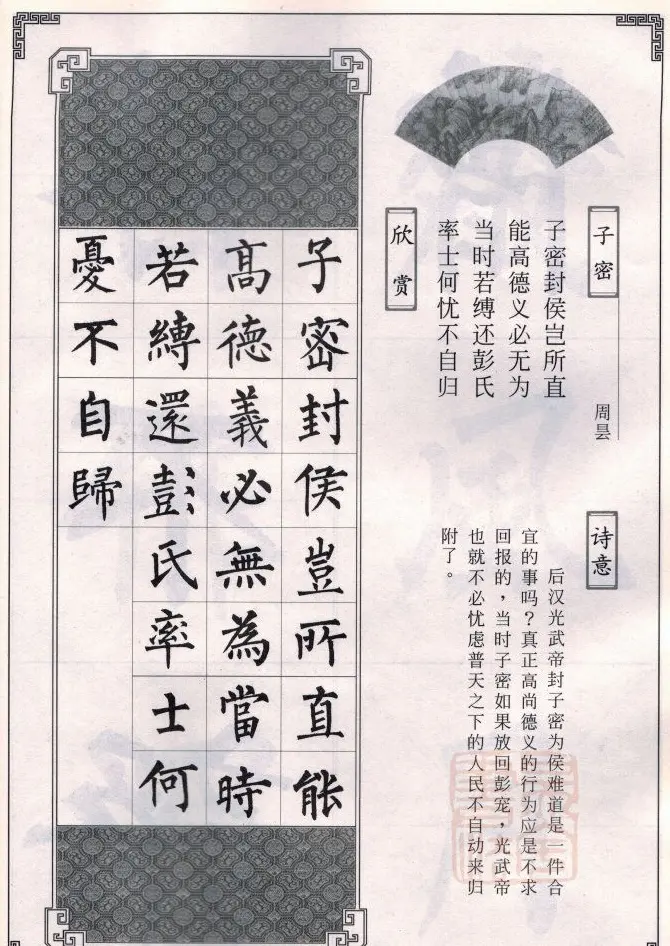 子密
周昙
子密封侯岂所直
能高德义必无为
当时若缚还彭氏
率士何忧不自归
欣赏
诗意
后汉光武帝封子密为侯难道是一件合
宜的事吗?真正高尚德义的行为应是不求
回报的,当时子密如果放回彭宠,光武帝
也就不必忧虑普天之下的人民不自动来归
附了。
子密封侯豈所直能
高德義必無為當時
若縛還彭氏率士何
憂不自歸